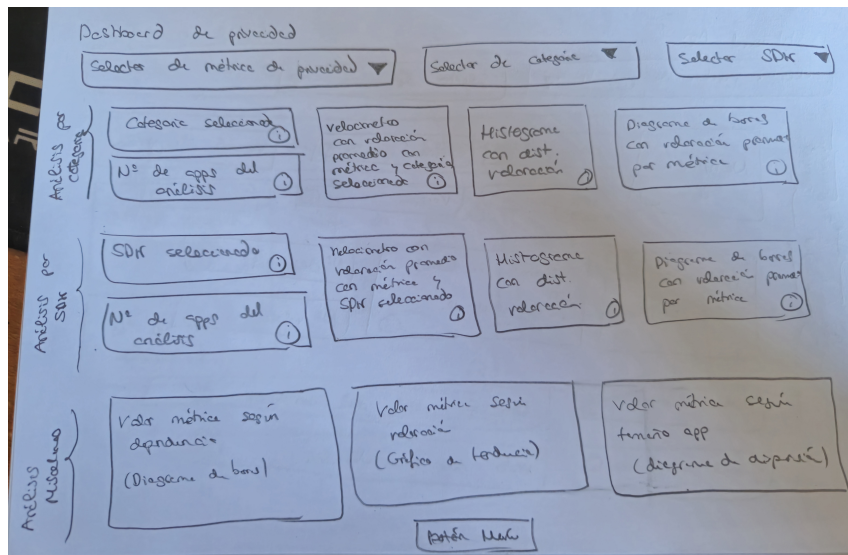 Dashboard de privacidad
Selector de métrica de privacidad
Selector de categoría
Selector SDK
Análisis por
categoría
Categoría seleccionada
i
Nº de apps del
análisis
i
Velocímetro
con valoración
promedio con
métrica y categoría
seleccionada
i
Histograma
con dist.
valoración
i
Diagrama de barras
con valoración promedio
por métrica
i
Análisis por
SDK
SDK seleccionado
i
Nº de apps del
análisis
i
Velocímetro con
valoración promedio
con métrica y
SDK seleccionado
i
Histograma
con dist.
valoración
i
Diagrama de barras
con valoración promedio
por métrica
i
Análisis
Valor métrica según
dependencia
(Diagrama de barras)
Valor métrica según
valoración
(Gráfico de tendencia)
Valor métrica según
tamaño app
(diagrama de dispersión)
Botón Menú